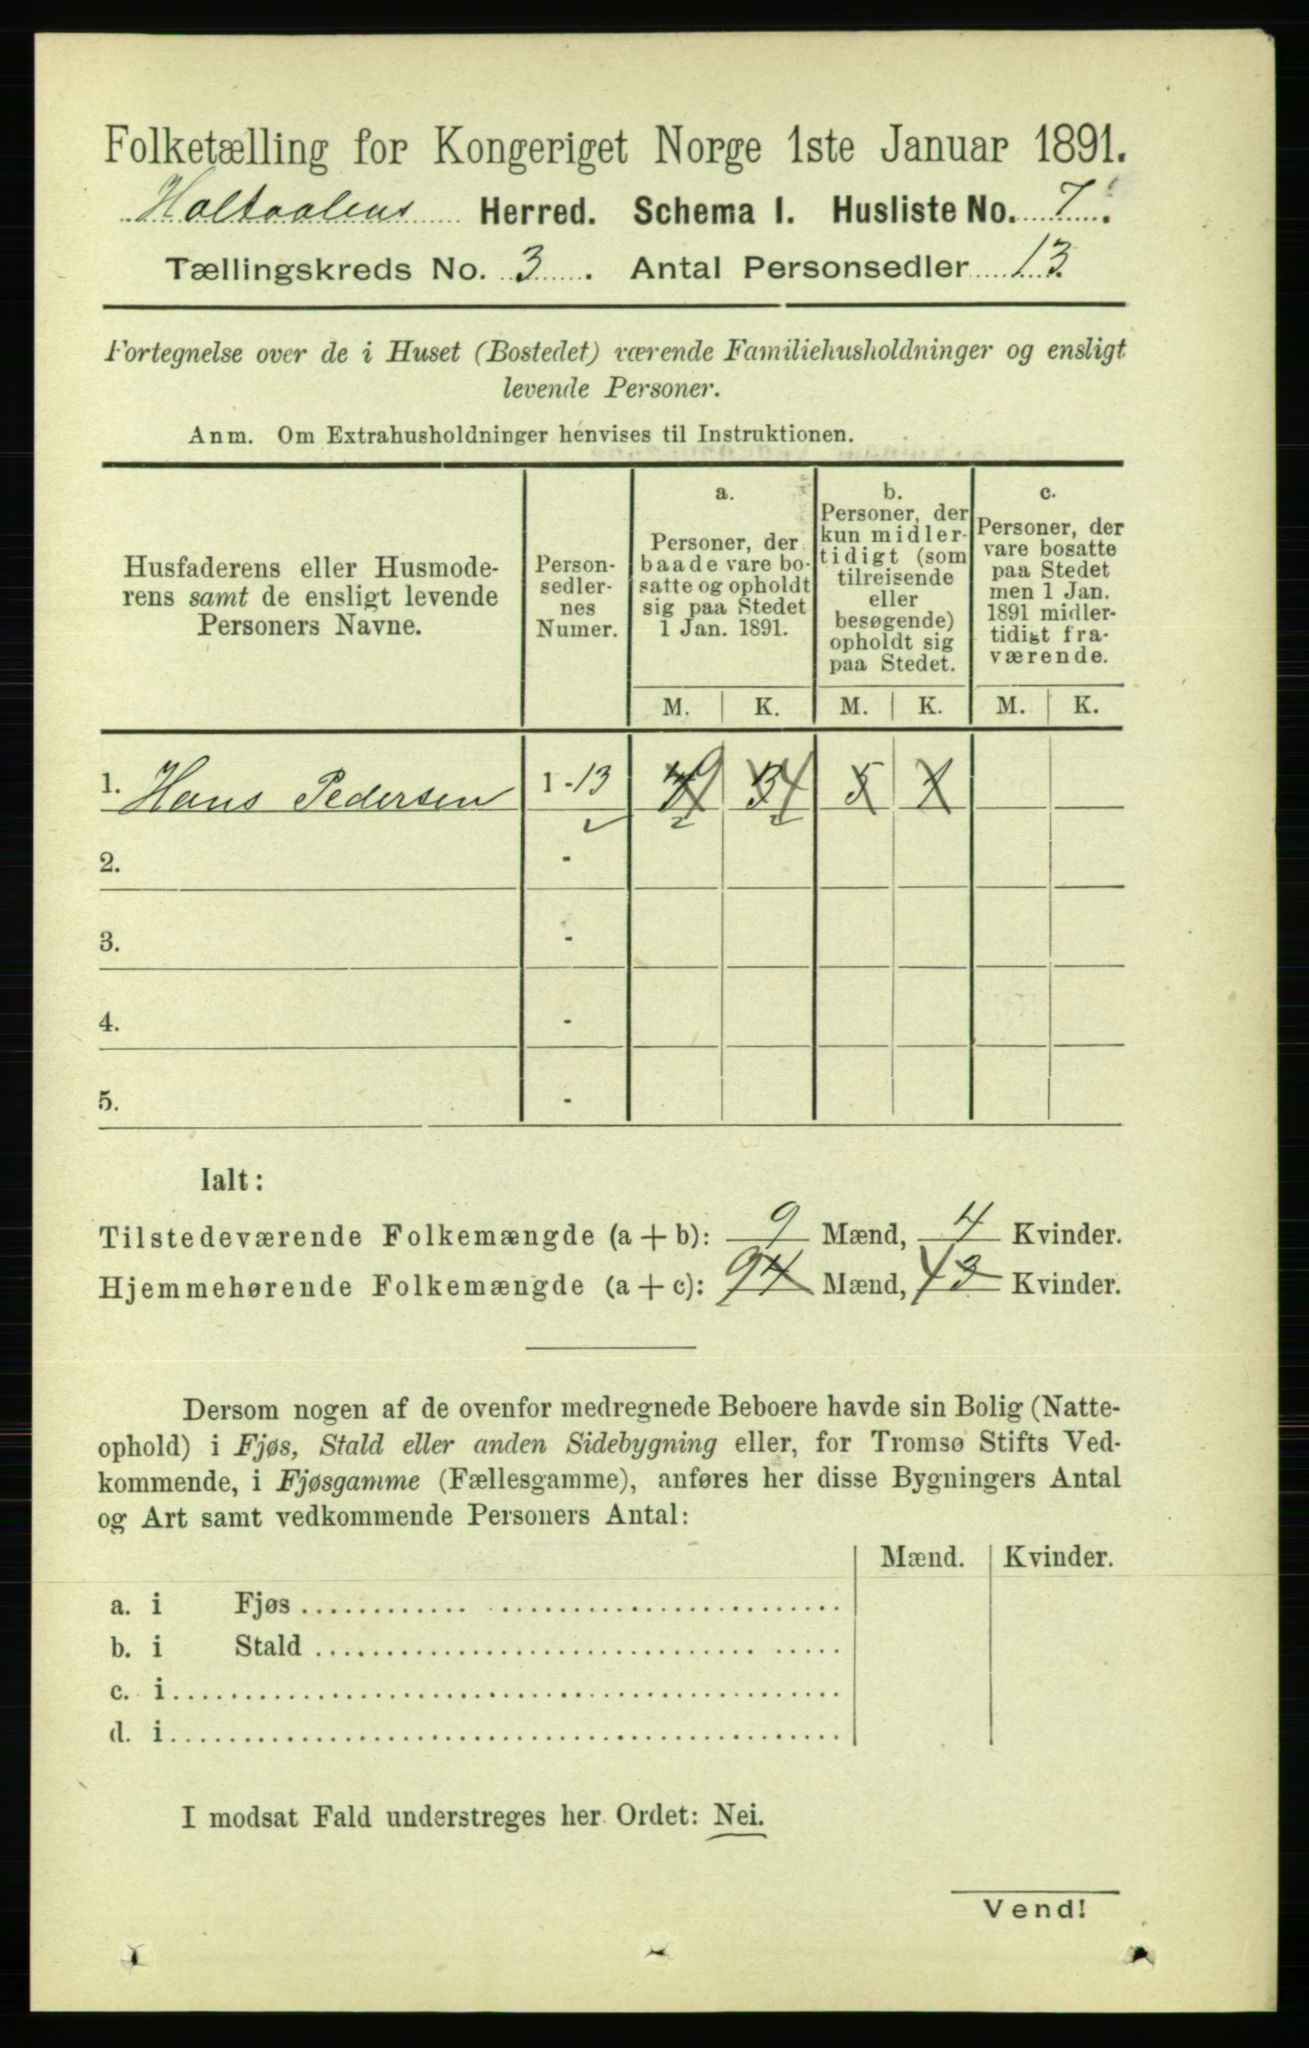 Folketælling for Kongeriget Norge 1ste Januar 1891.
Holtaalens Herred. Schema I. Husliste No. 7.
Tællingskreds No. 3. Antal Personsedler 13
Fortegnelse over de i Huset (Bostedet) værende Familiehusholdninger og ensligt
levende Personer.
Anm. Om Extrahusholdninger henvises til Instruktionen.
Husfaderens eller Husmode-
rens samt de ensligt levende
Personers Navne.
Person-
sedler-
nes
Numer.
a.
Personer, der
baade vare bo-
satte og opholdt
sig paa Stedet
1 Jan. 1891.
b.
Personer, der
kun midler-
tidigt (som
tilreisende
eller
besøgende)
opholdt sig
paa Stedet.
c.
Personer, der
vare bosatte
paa Stedet
men 1 Jan.
1891 midler-
tidigt fra-
værende.
M. K. M. K. M. K.
1. Hans Pedersen 1-13 9 4 5
2. -
3. -
4. -
5. -
Ialt:
Tilstedeværende Folkemængde (a + b): 9 Mænd, 4 Kvinder.
Hjemmehørende Folkemængde (a + c): 9 4 Mænd, 4 3 Kvinder.
Dersom nogen af de ovenfor medregnede Beboere havde sin Bolig (Natte-
ophold) i Fjøs, Stald eller anden Sidebygning eller, for Tromsø Stifts Ved-
kommende, i Fjøsgamme (Fællesgamme), anføres her disse Bygningers Antal
og Art samt vedkommende Personers Antal:
Mænd. Kvinder.
a. i Fjøs
b. i Stald
c. i
d. i
I modsat Fald understreges her Ordet: Nei.
Vend!